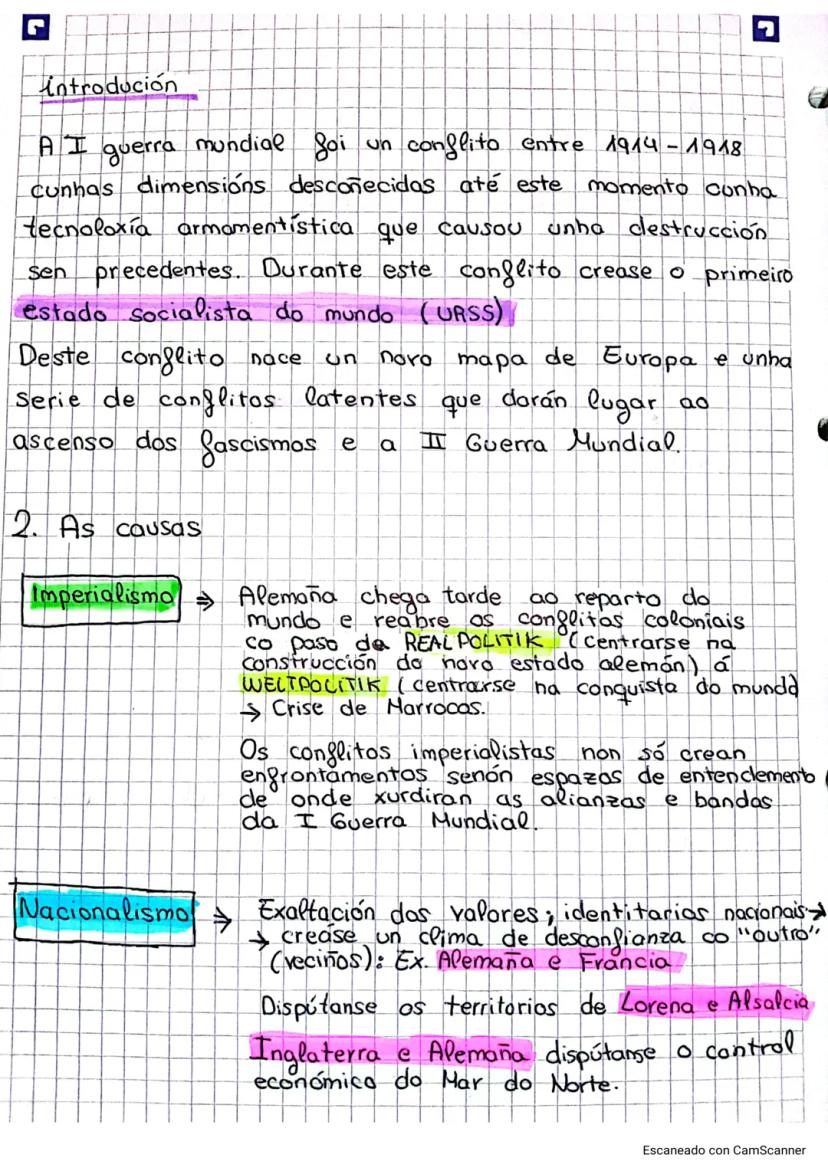 introdución
A I guerra mundial foi un conflito entre 1914-1918
cunhas dimensións descoñecidas até este momento cunha
tecnoloxía armamentística que causou unha destrucción
sen precedentes. Durante este conflito crease o primeiro
estado socialista do mundo (URSS)
Deste conflito nace un novo mapa de Europa e unha
serie de conflitos latentes que darán lugar ao
ascenso dos fascismos e a II Guerra Mundial.
2. As causas
Imperialismo ⇒ Alemaña chega tarde ao reparto do
mundo e reabre os conflitos coloniais
co paso da REALPOLITIK (centrarse na
construcción do novo estado alemán) á
WELTPOLITIK (centrarse na conquista do mundo)
→ Crise de Marrocos.
Os conflitos imperialistas non só crean
enfrontamentos senón espazos de entendemento
de onde xurdiran as alianzas e bandos
da I Guerra Mundial.
Nacionalismo ⇒ Exaltación dos valores; identitarios nacionais →
→ crease un clima de desconfianza co "outro"
(veciños): Ex. Alemaña e Francia
Dispútanse os territorios de Lorena e Alsalcia
Inglaterra e Alemaña dispútanse o control
económico do Mar do Norte.
Escaneado con CamScanner